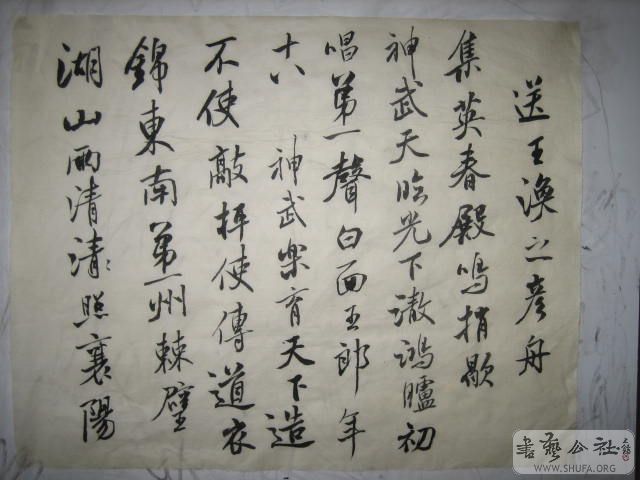 送王渙之彥舟
集英春殿鳴捎歇
神武天臨光下澈鴻臚初
唱第一聲白面王郎年
十八 神武樂育天下造
不使敲枰使傳道衣
錦東南第一州棘璧
湖山兩清清照襄陽
書藝公社
WWW.SHUFA.ORG